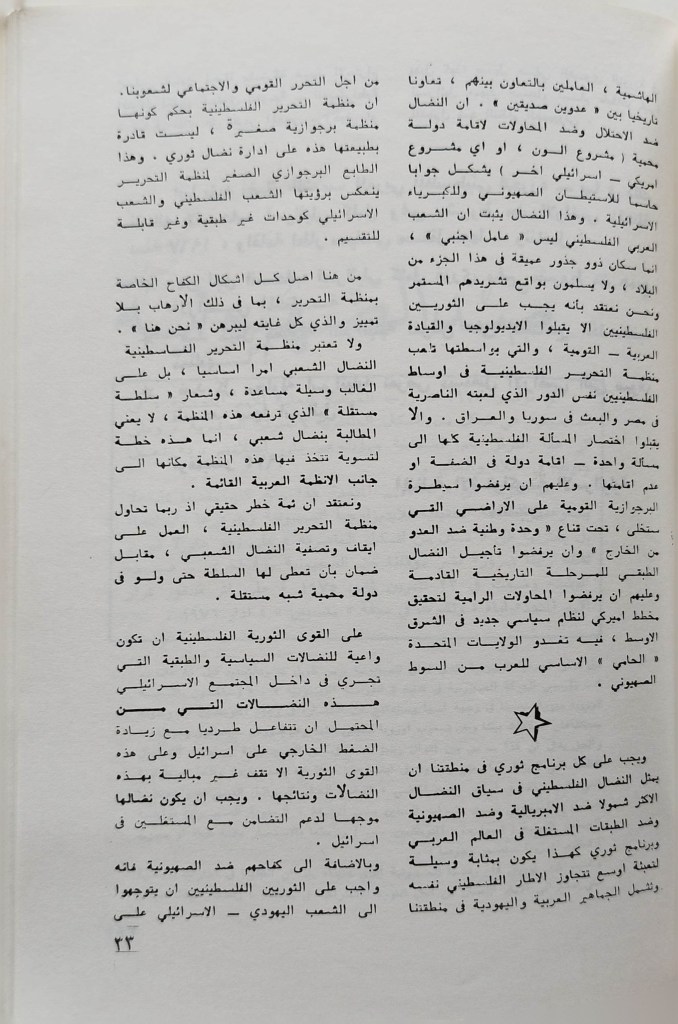 الهاشمية ، العاملين بالتعاون بينهم ، تعاونا
تاريخيا بين « عدوين صديقين » . ان النضال
ضد الاحتلال وضد المحاولات لاقامة دولة
محمية ( مشروع الون ، او اي مشروع
امريكي ــ اسرائيلي اخر ) يشكل جوابا
حاسما للاستيطان الصهيوني وللكبرياء
الاسرائيلية . وهذا النضال يثبت ان الشعب
العربي الفلسطيني ليس « عامل اجنبي » ،
انما سكان ذوو جذور عميقة في هذا الجزء من
البلاد ، ولا يسلمون بواقع تشريدهم المستمر
ونحن نعتقد بأنه يجب على الثوريين
الفلسطينيين الا يقبلوا الايديولوجيا والقيادة
العربية ــ القومية ، والتي بواسطتها تلعب
منظمة التحرير الفلسطينية في اوساط
الفلسطينيين نفس الدور الذي لعبته الناصرية
في مصر والبعث في سوريا والعراق . والا
يقبلوا اختصار المسألة الفلسطينية كلها الى
مسألة واحدة ــ اقامة دولة في الضفة او
عدم اقامتها . وعليهم ان يرفضوا سيطرة
البرجوازية القومية على الاراضي التي
ستخلى ، تحت قناع « وحدة وطنية ضد العدو
من الخارج » وان يرفضوا تأجيل النضال
الطبقي للمرحلة التاريخية القادمة
وعليهم ان يرفضوا المحاولات الرامية لتحقيق
مخطط اميركي لنظام سياسي جديد في الشرق
الاوسط ، فيه تغدو الولايات المتحدة
« الحامي » الاساسي للعرب من السوط
الصهيوني .
ويجب على كل برنامج ثوري في منطقتنا ان
يمثل النضال الفلسطيني في سياق النضال
الاكثر شمولا ضد الامبريالية وضد الصهيونية
وضد الطبقات المستغلة في العالم العربي
وبرنامج ثوري كهذا يكون بمثابة وسيلة
لتعبئة اوسع تتجاوز الاطار الفلسطيني نفسه
وتشمل الجماهير العربية واليهودية في منطقتنا
من اجل التحرر القومي والاجتماعي لشعوبنا.
ان منظمة التحرير الفلسطينية بحكم كونها
منظمة برجوازية صغيرة ، ليست قادرة
بطبيعتها هذه على ادارة نضال ثوري . وهذا
الطابع البرجوازي الصغير لمنظمة التحرير
ينعكس برؤيتها الشعب الفلسطيني والشعب
الاسرائيلي كوحدات غير طبقية وغير قابلة
للتقسيم .
من هنا اصل كل اشكال الكفاح الخاصة
بمنظمة التحرير ، بما في ذلك الارهاب بلا
تمييز والذي كل غايته ليبرهن « نحن هنا » .
ولا تعتبر منظمة التحرير الفلسطينية
النضال الشعبي امرا اساسيا ، بل على
الغالب وسيلة مساعدة ، وشعار « سلطة
مستقلة » الذي ترفعه هذه المنظمة ، لا يعني
المطالبة بنضال شعبي ، انما هذه خطة
لتسوية تتخذ فيها هذه المنظمة مكانها الى
جانب الانظمة العربية القائمة .
ونعتقد ان ثمة خطر حقيقي اذ ربما تحاول
منظمة التحرير الفلسطينية ، العمل على
ايقاف وتصفية النضال الشعبي ، مقابل
ضمان بأن تعطى لها السلطة حتى ولو في
دولة محمية شبه مستقلة .
على القوى الثورية الفلسطينية ان تكون
واعية للنضالات السياسية والطبقية التي
تجري في داخل المجتمع الاسرائيلي
هذه النضالات التي من
المحتمل ان تتفاعل طرديا مع زيادة
الضغط الخارجي على اسرائيل وعلى هذه
القوى الثورية الا تقف غير مبالية بهذه
النضالات ونتائجها . ويجب ان يكون نضالها
موجها لدعم التضامن مع المستغلين في
اسرائيل .
وبالاضافة الى كفاحهم ضد الصهيونية فانه
واجب على الثوريين الفلسطينيين ان يتوجهوا
الى الشعب اليهودي ــ الاسرائيلي على
٣٣